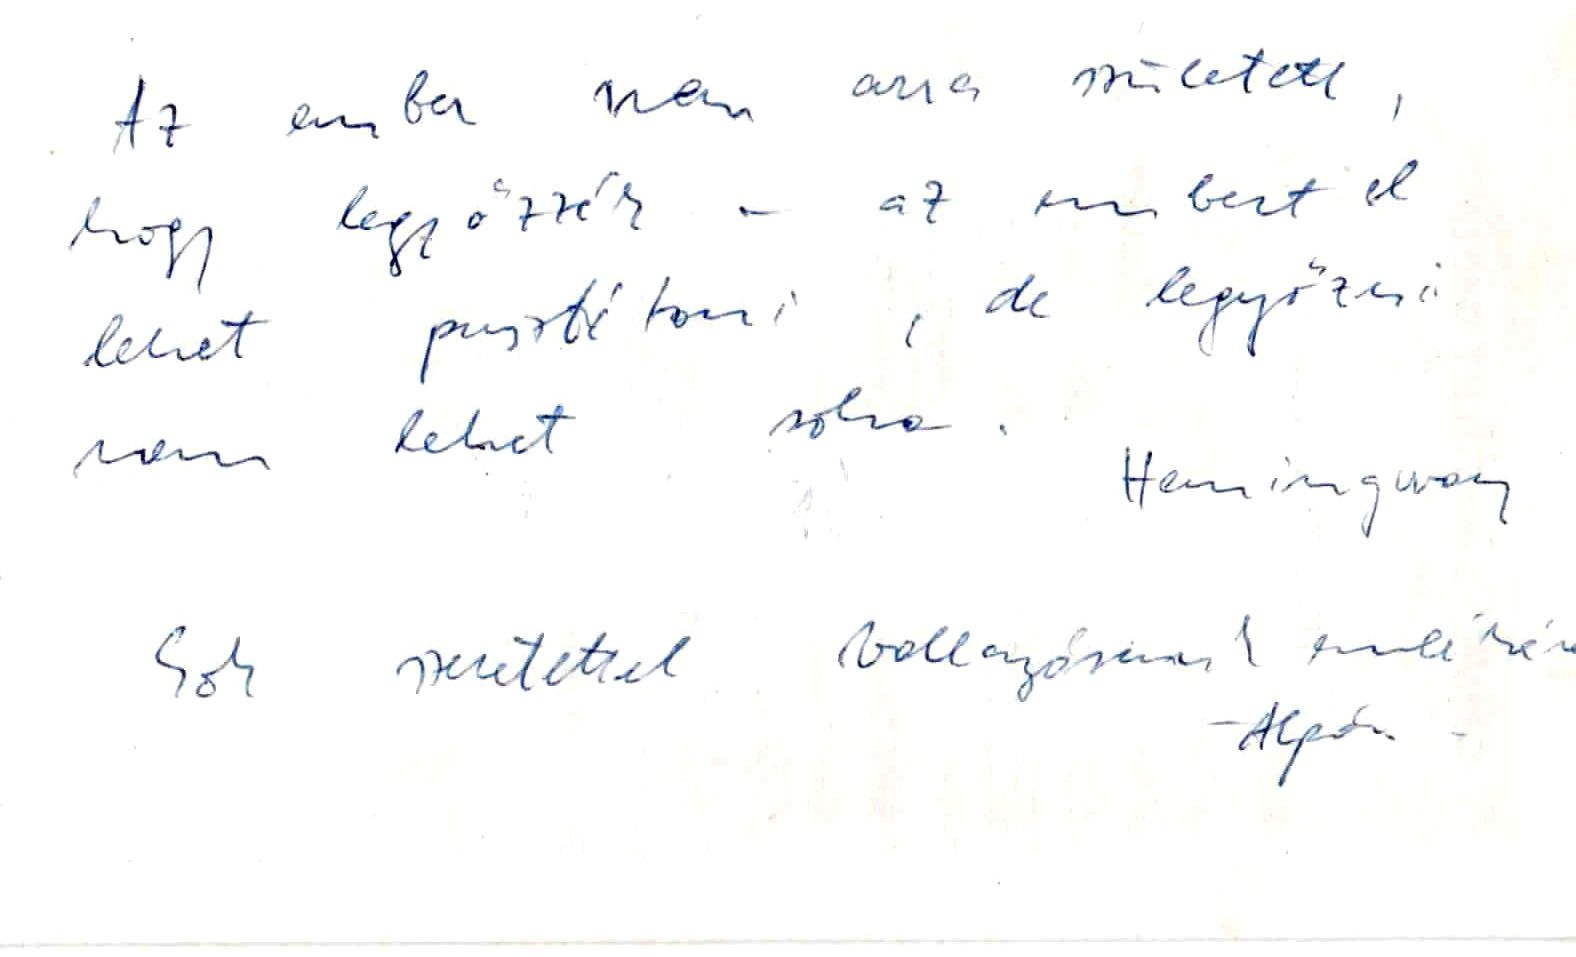 Az ember nem arra született,
hogy legyőzzék - az embert el
lehet pusztítani, de legyőzni
nem lehet soha.
Hemingway
Sok szeretettel ballagásának emlékére